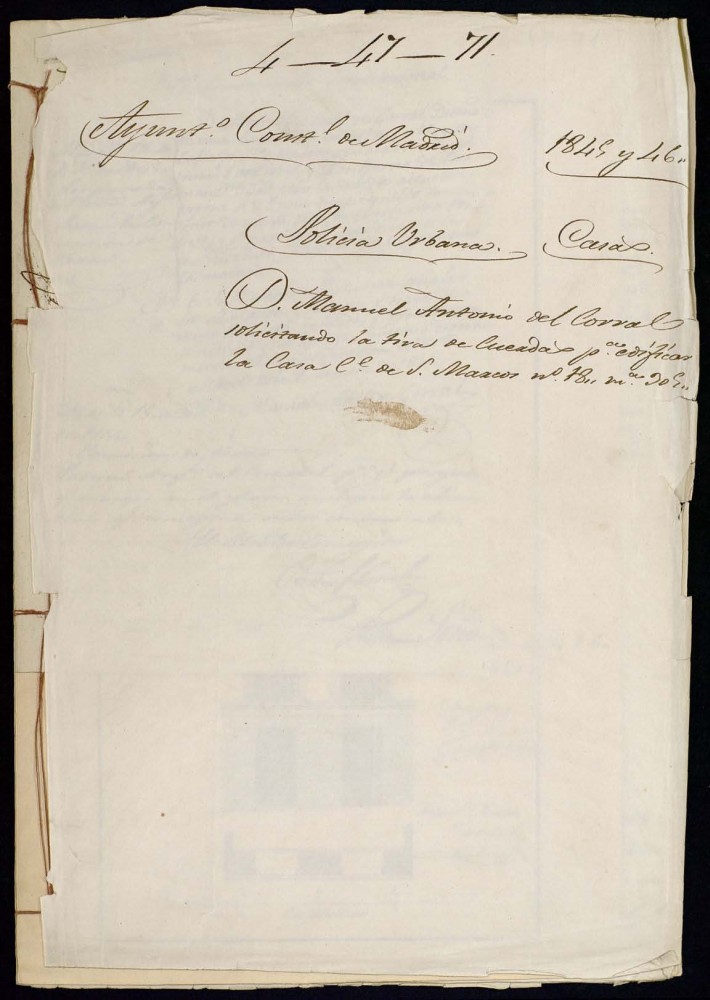 4 - 47 - 71.
Ayunt.º Const.l de Madrid. 1845 y 46.,
Policia Urbana. Casas.
D. Manuel Antonio del Corral
solicitando la tira de cuerdas p.ª edificar
la Casa C.e de S. Marcos nº. 18., m.ª 305.,